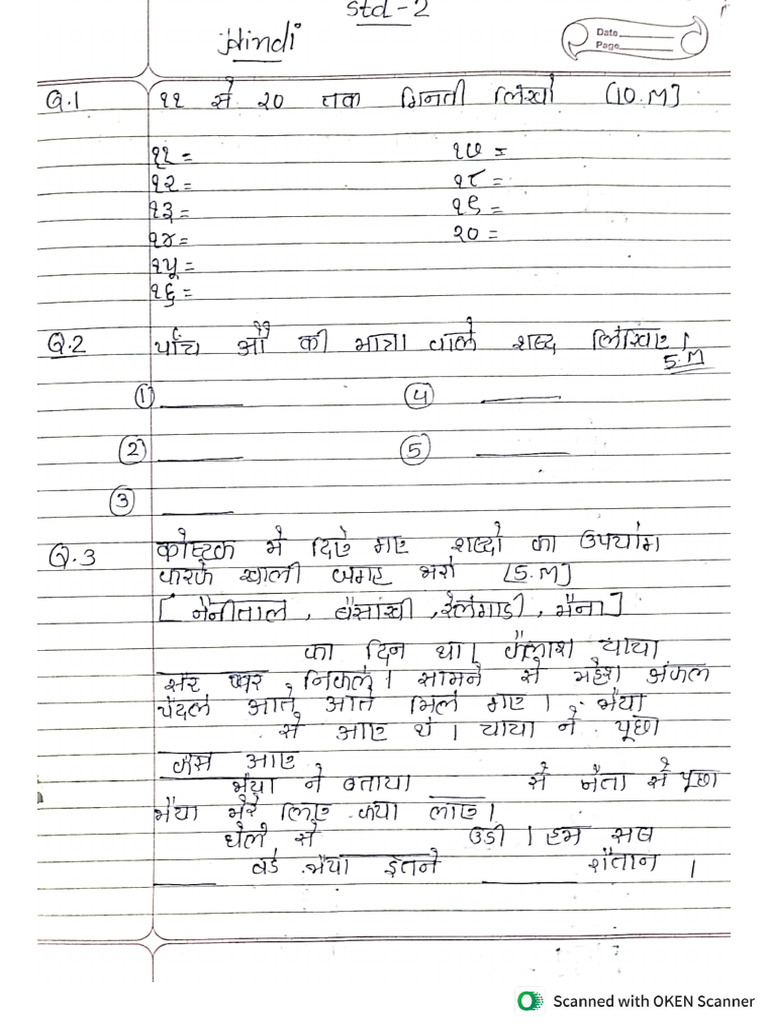 Std-2
Hindi
Date
Page
Q.1 ११ से २० तक गिनती लिखो [10.M]
११ = १७ =
१२ = १८ =
१३ = १९ =
१४ = २० =
१५ =
१६ =
Q.2 पांच औ की मात्रा वाले शब्द लिखिए।
5.M
① ④
② ⑤
③
Q.3 कोष्टक मे दिऐ गए शब्दो का उपयोग
करके खाली जगह भरो [5.M]
[ नैनीताल , बैसाखी , रेलगाडी , मैना ]
का दिन था। कैलाश चाचा
सैर पर निकले। सामने से महेश अंकल
पैदल आते आते मिल गए। भैया
से आए थे। चाचा ने पूछा
कैसे आए
भैया ने बताया से नैता से पूछा
भैया मेरे लिए क्या लाए।
थैले से उडी। हम सब
बडे भैया इतने शैतान ।
Scanned with OKEN Scanner